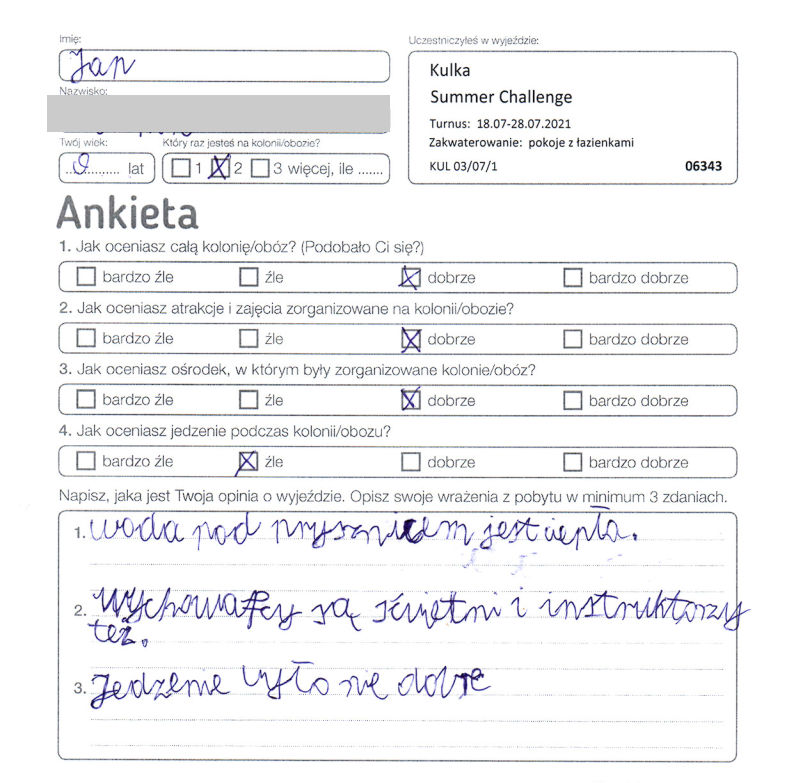 Imię:
Jan
Uczestniczyłeś w wyjeździe:
Kulka
Summer Challenge
Turnus: 18.07-28.07.2021
Zakwaterowanie: pokoje z łazienkami
KUL 03/07/1 06343
Nazwisko:
Twój wiek: Który raz jesteś na kolonii/obozie?
..9......... lat 1 2 3 więcej, ile .......
Ankieta
1. Jak oceniasz całą kolonię/obóz? (Podobało Ci się?)
bardzo źle źle dobrze bardzo dobrze
2. Jak oceniasz atrakcje i zajęcia zorganizowane na kolonii/obozie?
bardzo źle źle dobrze bardzo dobrze
3. Jak oceniasz ośrodek, w którym były zorganizowane kolonie/obóz?
bardzo źle źle dobrze bardzo dobrze
4. Jak oceniasz jedzenie podczas kolonii/obozu?
bardzo źle źle dobrze bardzo dobrze
Napisz, jaka jest Twoja opinia o wyjeździe. Opisz swoje wrażenia z pobytu w minimum 3 zdaniach.
1. woda pod prysznicem jest ciepła.
2. Wychowafcy są świętni i instruktorzy
też.
3. Jedzenie było nie dobre